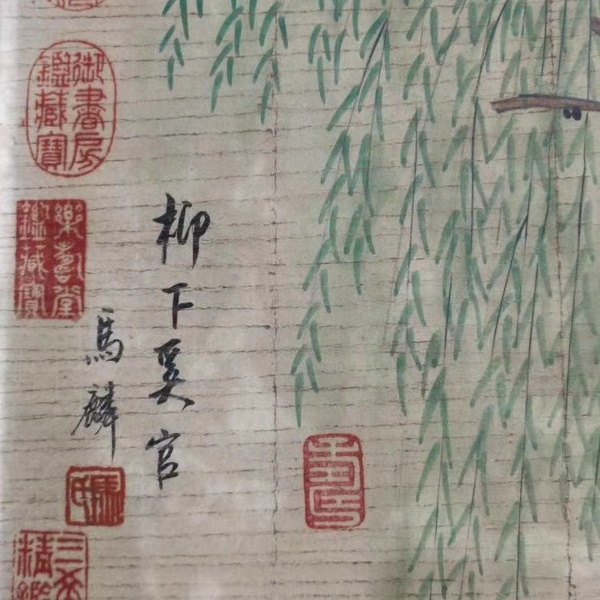 御書房
鑑藏寶
樂壽堂
鑑藏寶
柳下奚官
馬麟
馬氏
三希
精鑑